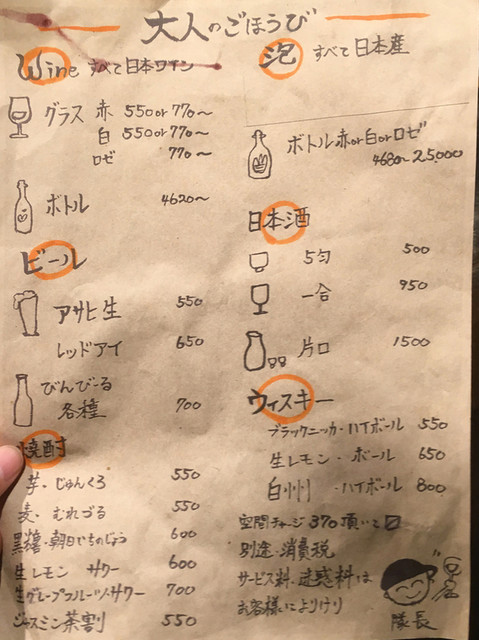 大人のごほうび
Wine すべて日本ワイン
グラス 赤 550or770〜
白 550or770〜
ロゼ 770〜
ボトル 4620〜
ビール
アサヒ生 550
レッドアイ 650
びんびーる
各種 700
焼酎
芋・じゅんくろ 550
麦・むれづる 550
黒糖・朝日いちのじょう 600
生レモンサワー 600
生グレープフルーツ・サワー 700
ジャスミン茶割 550
泡 すべて日本産
ボトル赤or白orロゼ
4680〜25,000
日本酒
5勺 500
一合 950
片口 1500
ウィスキー
ブラックニッカ・ハイボール 550
生レモン・ボール 650
白州・ハイボール 800
空間チャージ370頂いて
別途・消費税
サービス料、迷惑料は
お客様によりけり
隊長